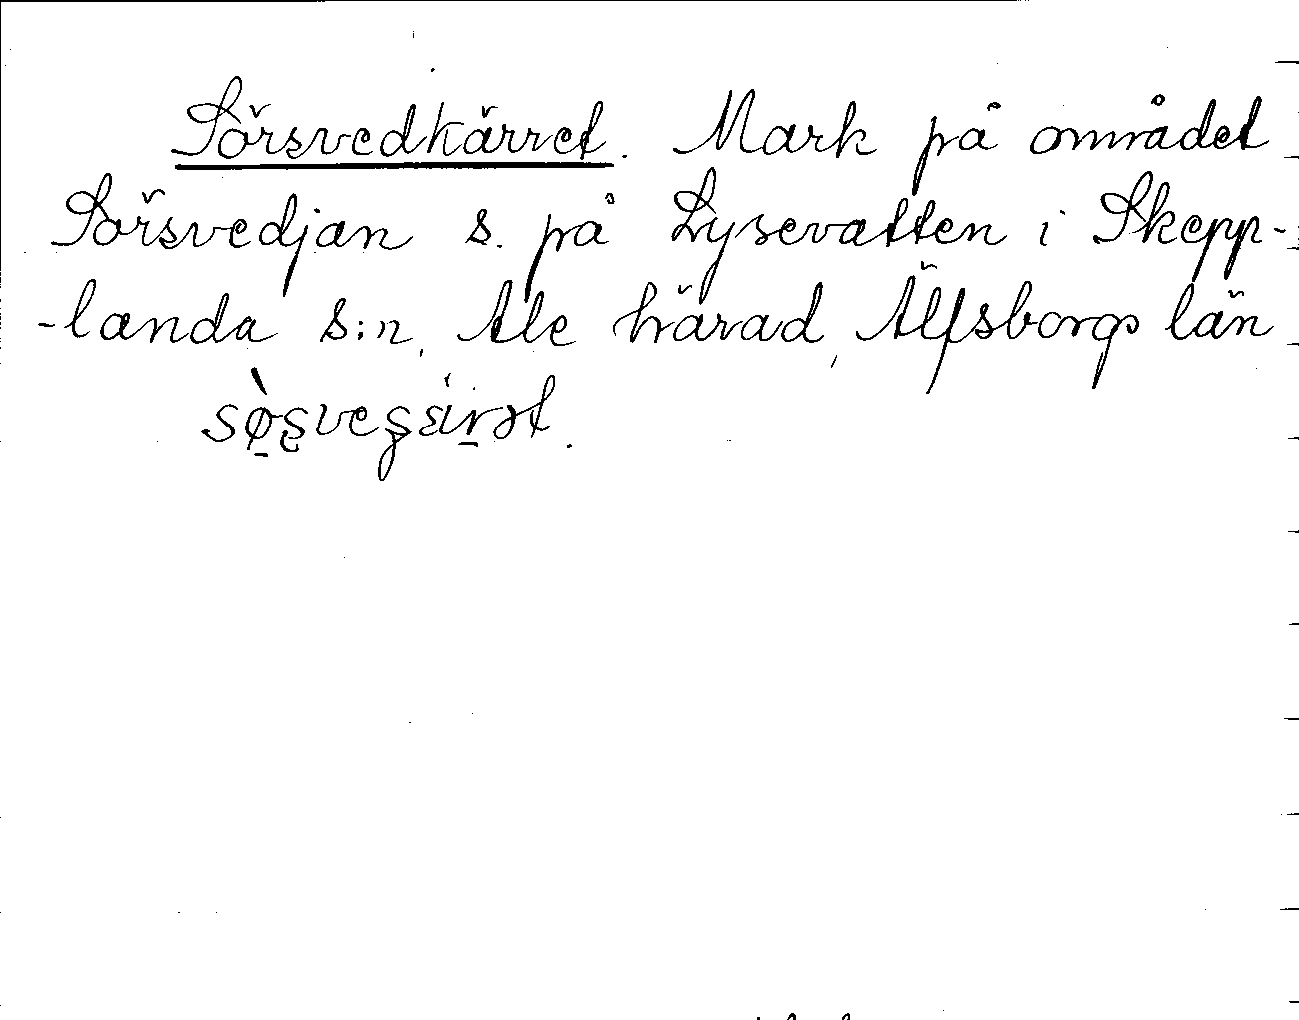 Sörsvedkärret. Mark på området
Sörsvedjan s. på Lysevatten i Skepp-
-landa s:n, Ale härad, Älfsborgs län